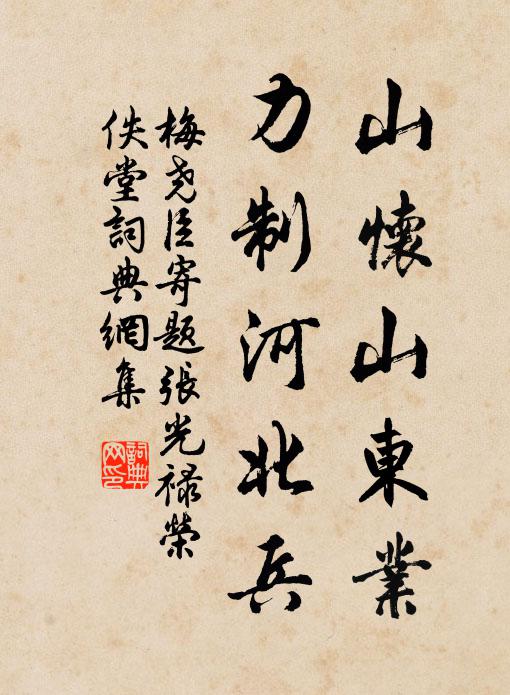 山懷山東業
力制河北兵
梅堯臣寄題張光祿榮
佚堂詞典網集
詞典網印